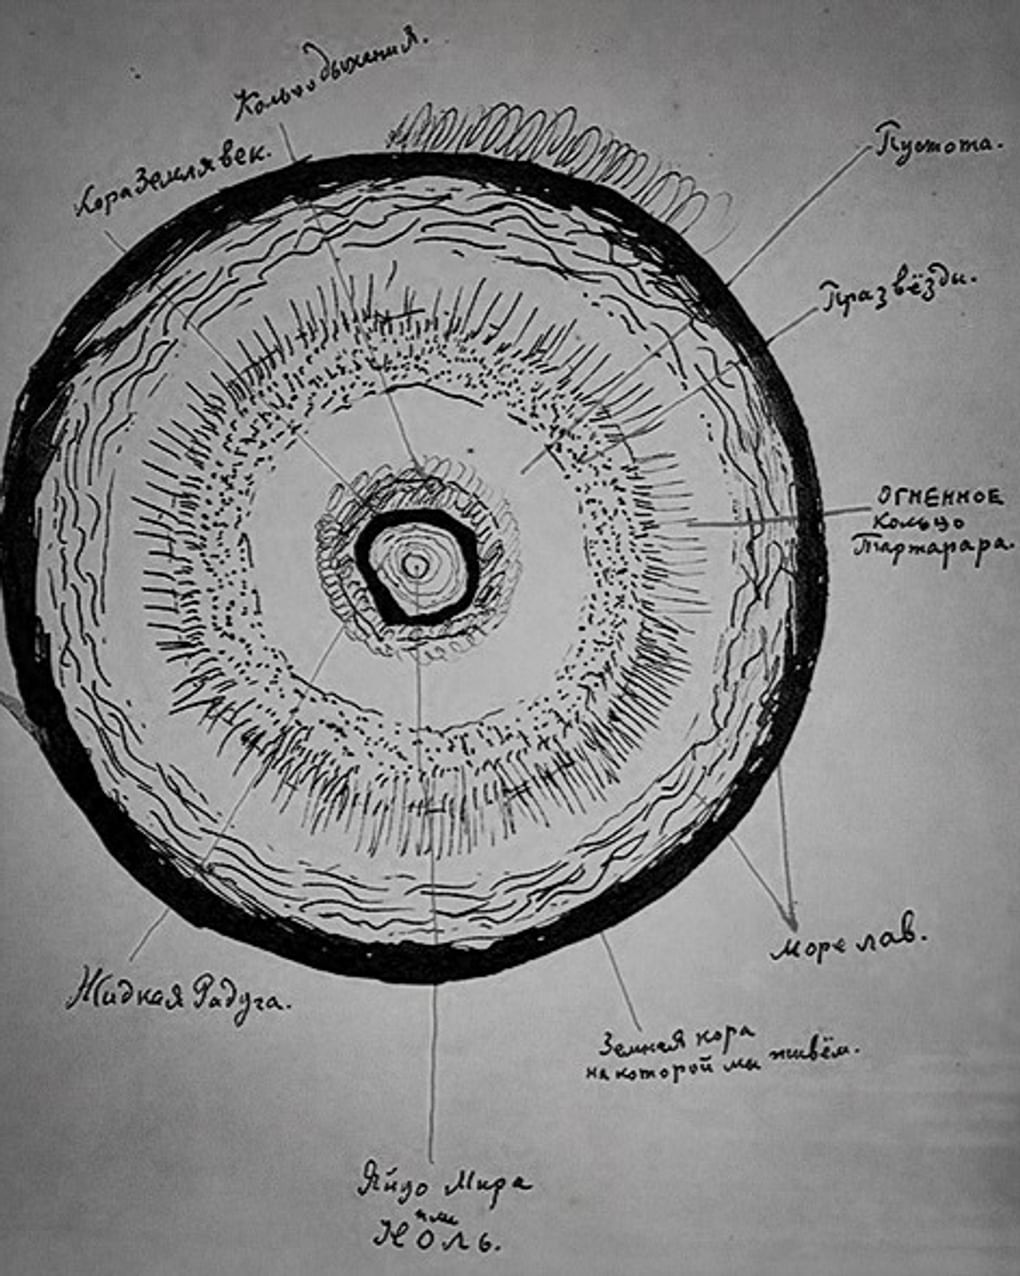 Кольцо дыхания.
Кора Землявек.
Пустота.
Празвёзды.
ОГНЕННОЕ
Кольцо
Тартарара.
Море лав.
Жидкая Радуга.
Земная кора
на которой мы живём.
Яйцо Мира
или
НОЛЬ.